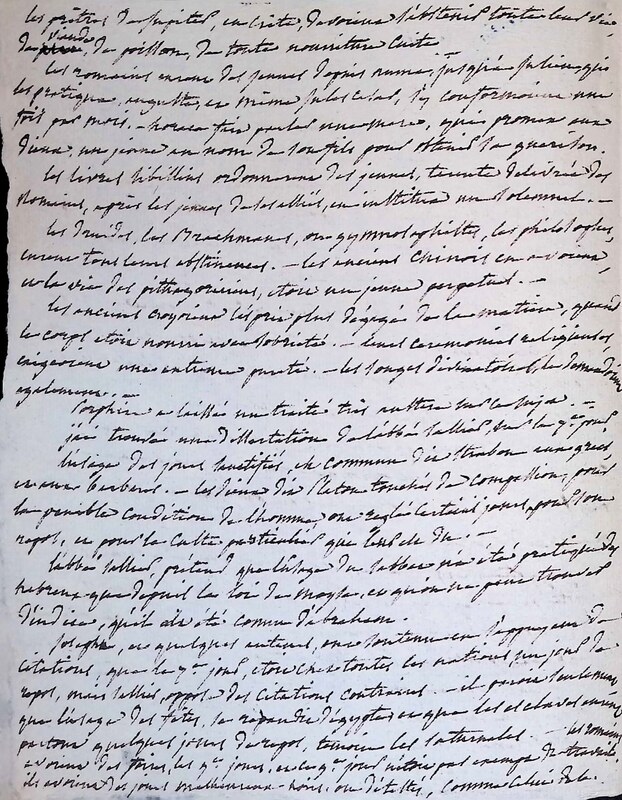 les prêtres de Jupiter, en Crète, devoient s'abstenir toute leur vie
de viande, de poisson, de toute nourriture cuite
les romains eurent des jeunes depuis numa, jusqu'à julien, qui
les pratiqua, auguste, et même jules César, s'y conformoient une
fois par mois. – horace fait parler une mere, qui promet aux
dieux, un jeune au nom de son fils pour obtenir sa guérison.
les livres sibillins ordonnerent des jeunes,
romains, après les jeunes de ses alliés, en institua un solemnel. –
les druides, les Brachmanes, ou gymnosophistes, les philosophes,
eurent tous leurs abstinences. – les anciens Chinois en avoient,
et la vie des pithagoriciens, étoit un jeune perpetuel. –
les anciens croyoient l'esprit plus dégagé de la matiere, quand
le corps étoit nourri avec sobrieté. – leurs ceremonies religieuses,
exigeoient une entiere pureté. – les songes divinatoires, la demandoient
également. –
Porphire a laissé un traité très austere sur ce sujet. –
j'ai trouvé une dissertation de l'abbé sallier, sur le 7me jour
l'usage des jours sanctifiés, est commun dit strabon aux grecs
et aux barbares. – les dieux dit Platon touchés de compassion, pour
la penible condition de l'homme, ont reglé certains jours, pour son
repos, et pour le culte particulier que leur est dû. –
l'abbé sallier pretend que l'usage du sabbat n'a été pratiqué des
hebreux que depuis la loi de moyse, et qu'on ne peut trouver
d'indice, qu'il ait été connu d'abraham.
Josephe, et quelques auteurs, ont soutenu en s'appuyant de
citations, que le 7me jour, étoit chez toutes les nations, un jour de
repos, mais sallier, oppose des citations contraires. – il pense seulement
que l'usage des fêtes, se repandit d'égypte, et que les esclaves avoient
partout quelques jours de repos, témoin les saturnales. – les romains
avoient des foires, les 9me jours, et ce 9me jour n'étoit pas exempt de travail.
ils avoient des jours malheureux – noirs, ou détestés, comme celui de la